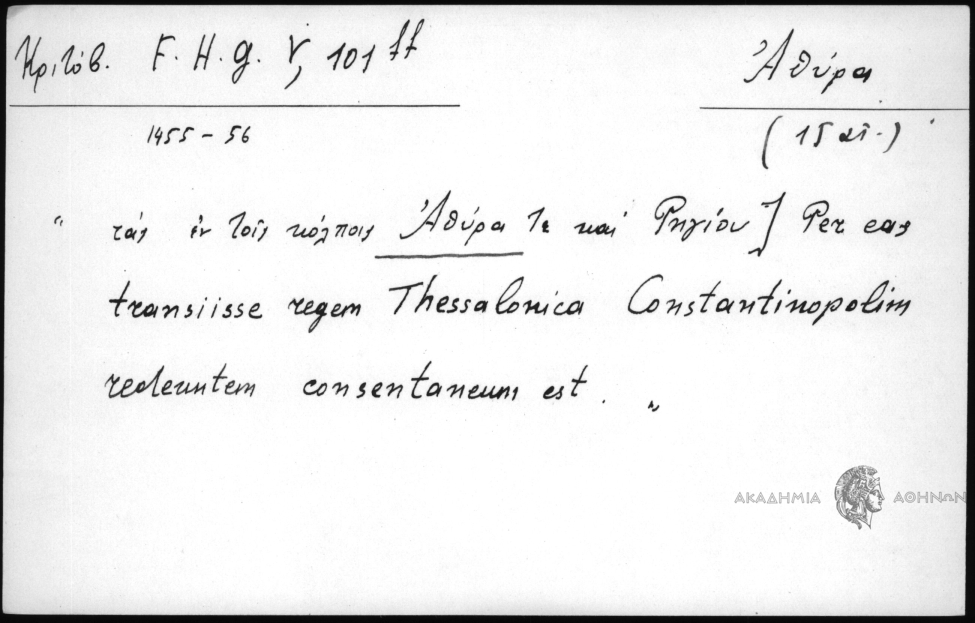 Κριτόβ. F. H. G. V, 101 ff
Ἀθύρα
1455 - 56
(15 αἰ.)
“ τάς ἐν τοῖς κόλποις Ἀθύρα τε καί Ρηγίου] Per eas
transiisse regem Thessalonica Constantinopolim
redeuntem consentaneum est. „
ΑΚΑΔΗΜΙΑ ΑΘΗΝΩΝ